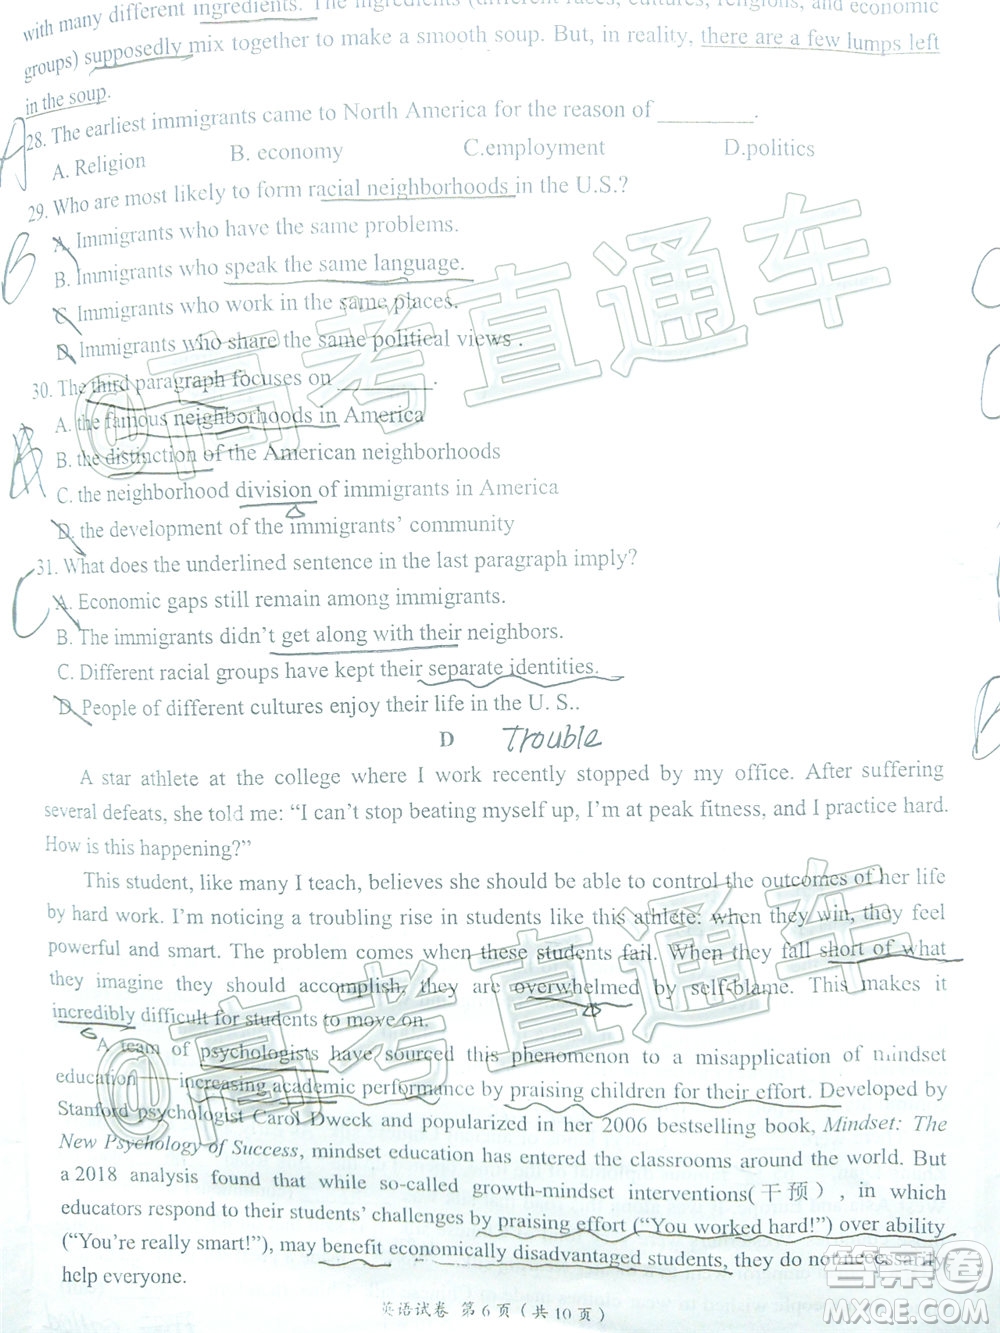 with many different ingredients. The ingredients (different races, cultures, religions, and economic
groups) supposedly mix together to make a smooth soup. But, in reality, there are a few lumps left
in the soup.
A
28. The earliest immigrants came to North America for the reason of ________.
A. Religion B. economy C.employment D.politics
29. Who are most likely to form racial neighborhoods in the U.S.?
B
A. Immigrants who have the same problems.
B. Immigrants who speak the same language.
C. Immigrants who work in the same places.
D. Immigrants who share the same political views .
30. The third paragraph focuses on ________.
A. the famous neighborhoods in America
B. the distinction of the American neighborhoods
C. the neighborhood division of immigrants in America
D. the development of the immigrants' community
31. What does the underlined sentence in the last paragraph imply?
C
A. Economic gaps still remain among immigrants.
B. The immigrants didn't get along with their neighbors.
C. Different racial groups have kept their separate identities.
D. People of different cultures enjoy their life in the U. S..
D Trouble
A star athlete at the college where I work recently stopped by my office. After suffering
several defeats, she told me: "I can't stop beating myself up, I'm at peak fitness, and I practice hard.
How is this happening?"
This student, like many I teach, believes she should be able to control the outcomes of her life
by hard work. I'm noticing a troubling rise in students like this athlete: when they win, they feel
powerful and smart. The problem comes when these students fail. When they fall short of what
they imagine they should accomplish, they are overwhelmed by self-blame. This makes it
incredibly difficult for students to move on.
A team of psychologists have sourced this phenomenon to a misapplication of mindset
education — increasing academic performance by praising children for their effort. Developed by
Stanford psychologist Carol Dweck and popularized in her 2006 bestselling book, Mindset: The
New Psychology of Success, mindset education has entered the classrooms around the world. But
a 2018 analysis found that while so-called growth-mindset interventions(干预), in which
educators respond to their students' challenges by praising effort ("You worked hard!") over ability
("You're really smart!"), may benefit economically disadvantaged students, they do not necessarily
help everyone.
英语试卷 第 6 页（共 10 页）
@高考直通车
@高考直通车
答案卷
MXQE.COM